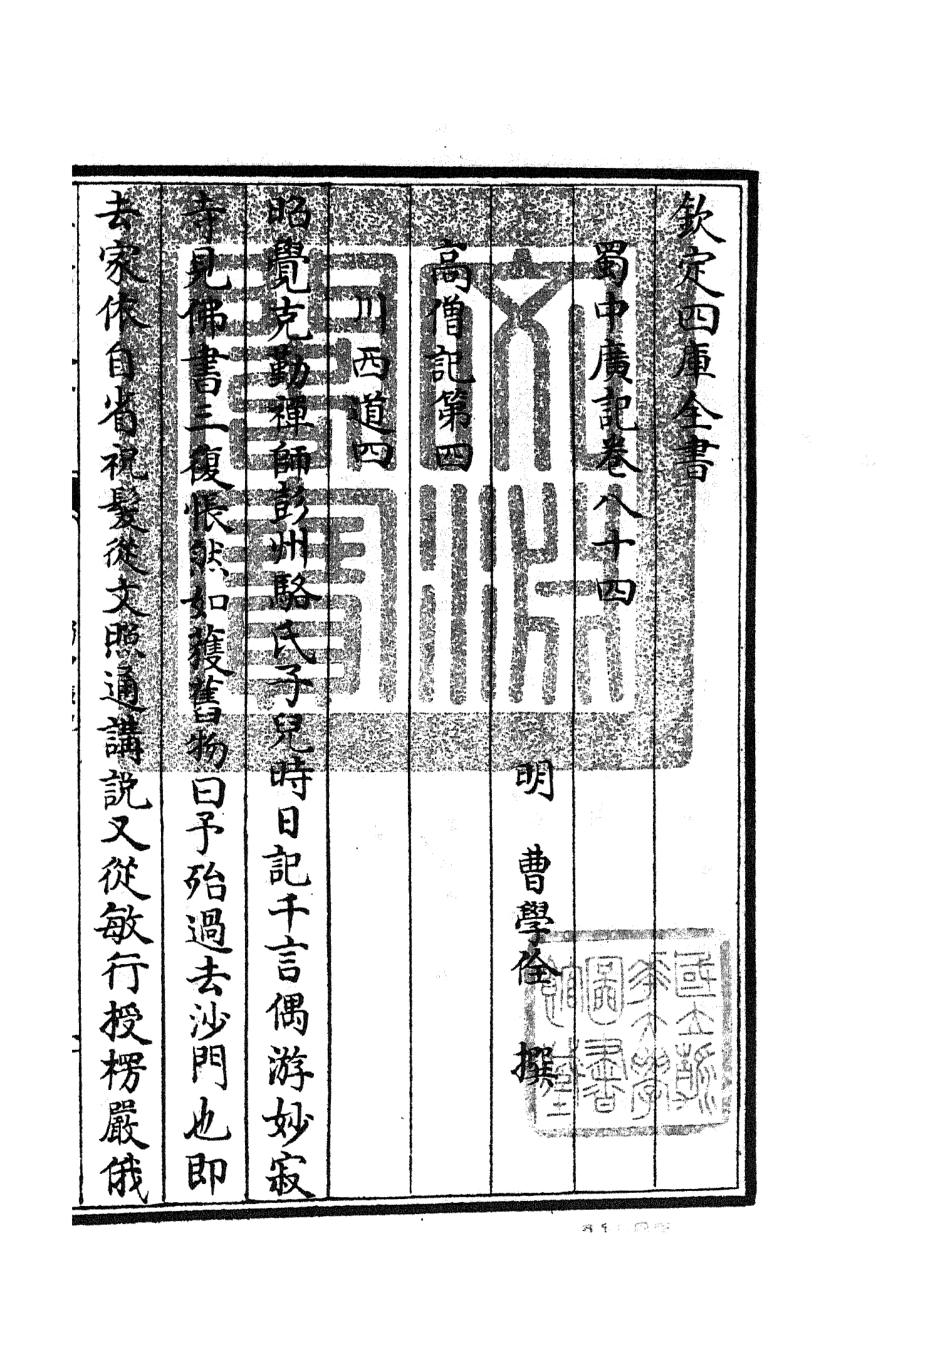 欽定四庫全書
蜀中廣記卷八十四
明 曹學佺 撰
高僧記第四
川西道四
昭覺克勤禪師彭州駱氏子兒時日記千言偶游妙寂
寺見佛書三復悵然如獲舊物曰予殆過去沙門也即
去家依自省祝髮從文照通講説又從敏行授楞嚴俄
文淵閣寶